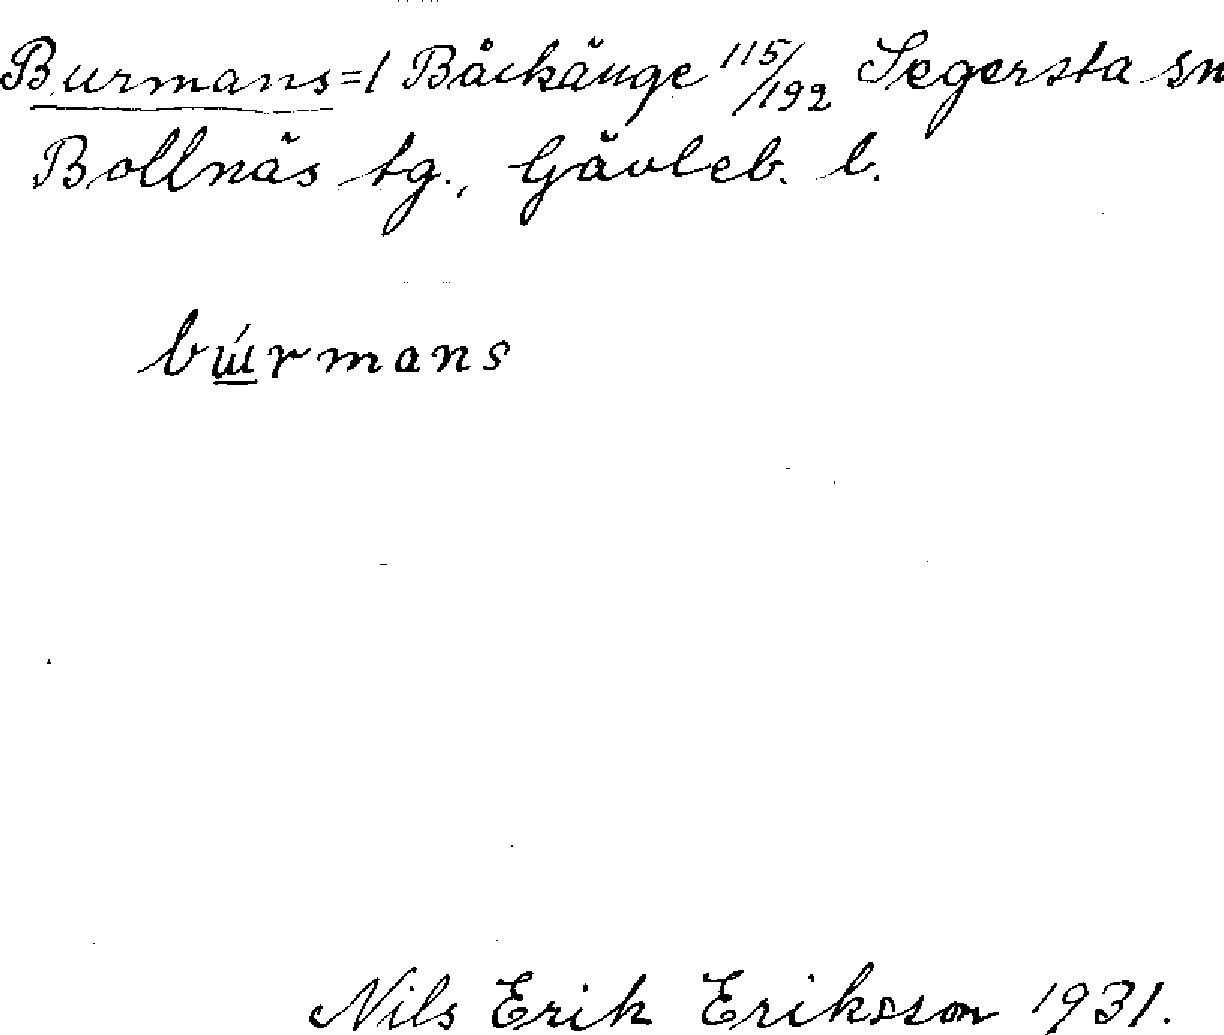 Burmans = 1 Båckänge 115/192 Segersta sn
Bollnäs tg., Gävleb. l.
bɯ́rmans
Nils Erik Eriksson 1931.